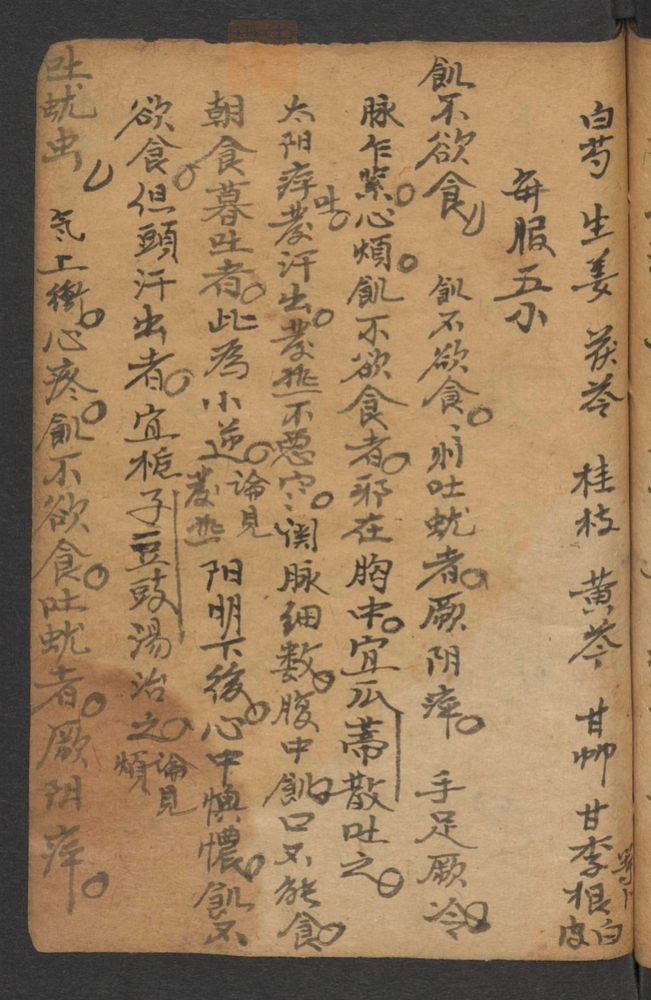 白芍 生姜 茯苓 桂枝 黄芩 甘艸 甘李根白皮
每服五小
飢不欲食 飢不欲食、則吐蚘者。厥阴症。 手足厥冷。
脉乍紧。心煩。飢不欲食者。邪在胸中。宜瓜蒂散吐之。
太阳症。吐。發汗出。發熱不惡寒。関脉细數。腹中飢。口不能食。
朝食暮吐者。此为小逆。論見發熱 阳明下後。心中懊憹。飢不
欲食。但頭汗出者。宜栀子豆豉湯治之。論見煩
吐蚘虫 氣上衝。心疼。飢不欲食。吐蚘者。厥阴症。